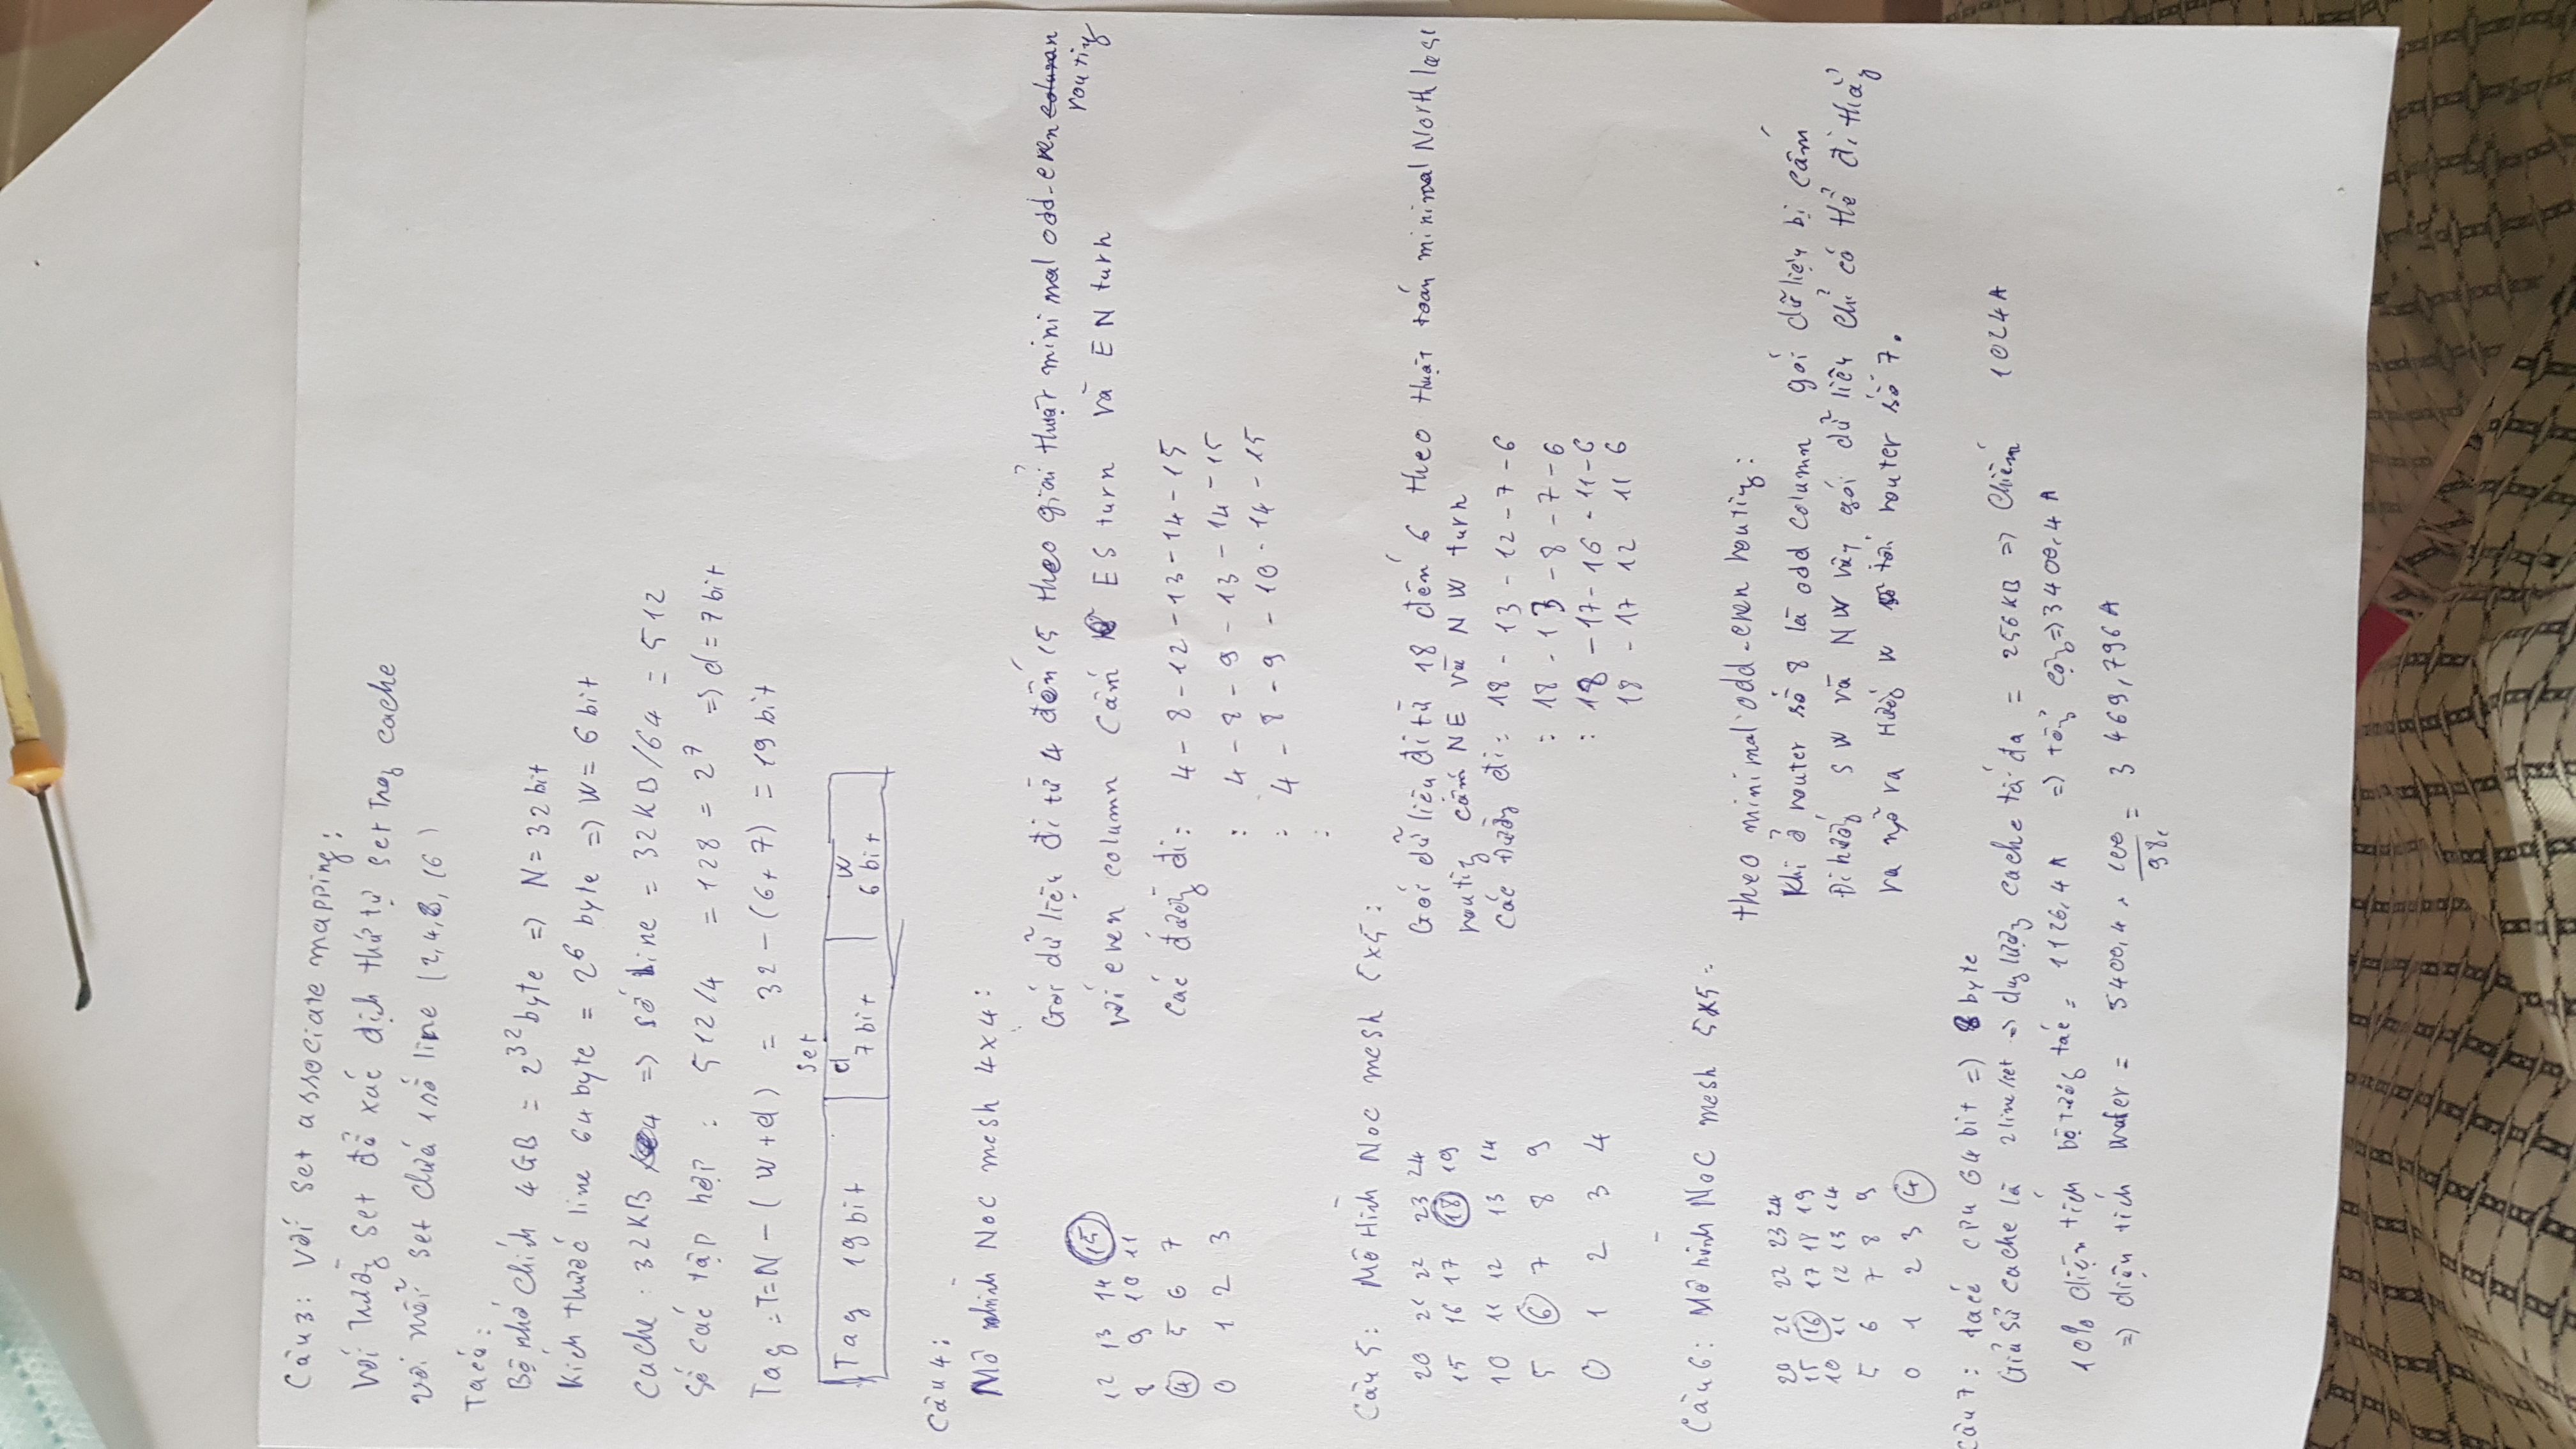 Câu 3: Với Set associate mapping:
Với Trường Set để xác định thứ tự set Trong cache
với mỗi set chứa 1 số line (2,4,8,16)
Ta có:
Bộ nhớ chính 4GB = 2^32 byte => N = 32 bit
Kích thước line 64 byte = 2^6 byte => W = 6 bit
Cache : 32KB => số line = 32KB/64 = 512
Số các tập hợp : 512/4 = 128 = 2^7 => d = 7 bit
Tag = T = N - (W + d) = 32 - (6 + 7) = 19 bit
Set
Tag 19 bit d 7 bit W 6 bit
Câu 4:
Mô hình NoC mesh 4x4 :
12 13 14 15
8 9 10 11
4 5 6 7
0 1 2 3
Gói dữ liệu đi từ 4 đến 15 theo giải thuật minimal odd-even routing
với even column Cấm ES turn và EN turn
Các đường đi : 4 - 8 - 12 - 13 - 14 - 15
: 4 - 8 - 9 - 13 - 14 - 15
: 4 - 8 - 9 - 10 - 14 - 15
:
Câu 5: Mô Hình NoC mesh 5x5 :
20 21 22 23 24
15 16 17 18 19
10 11 12 13 14
5 6 7 8 9
0 1 2 3 4
Gói dữ liệu đi từ 18 đến 6 theo thuật toán minimal North last
routing cấm NE và NW turn
Các Đường đi : 18 - 13 - 12 - 7 - 6
: 18 - 13 - 8 - 7 - 6
: 18 - 17 - 16 - 11 - 6
18 - 17 12 11 6
Câu 6: Mô hình NoC mesh 5x5 =
20 21 22 23 24
15 16 17 18 19
10 11 12 13 14
5 6 7 8 9
0 1 2 3 4
theo minimal odd-even routing:
Khi ở router số 8 là odd column gói dữ liệu bị cấm
Đi hướng SW và NW vậy gói dữ liệu chỉ có thể đi thẳng
ra ngõ ra Hướng W tới router số 7.
Câu 7: ta có CPU 64 bit => 8 byte
Giả sử cache là 2 line/set => dung lượng cache tối đa = 256KB => Chiếm 1024A
10% diện tích bộ tương tác = 1126,4 A => tổng cộng => 3400,4 A
=> diện tích Wafer = 5400,4 . 100/98 = 3 469,796 A